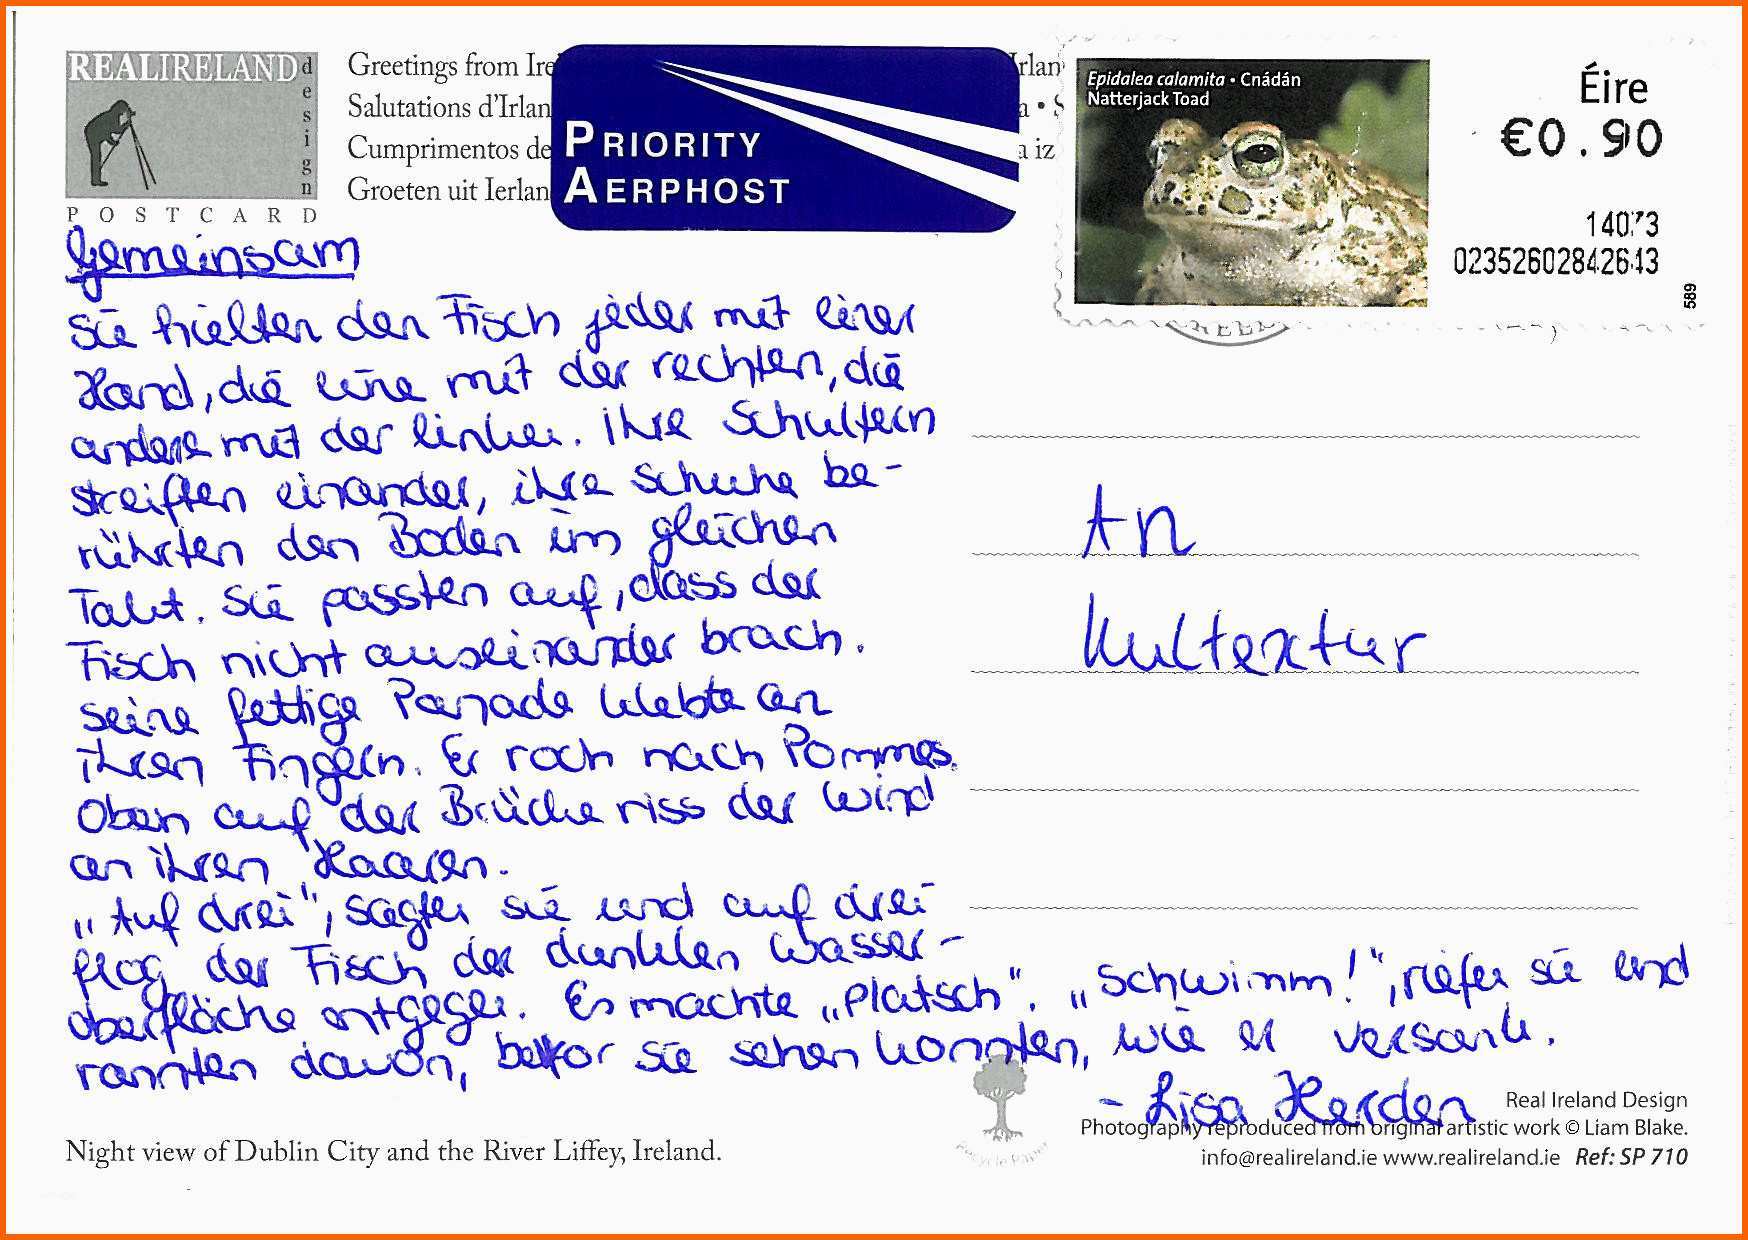 REALIRELAND
design
POSTCARD
Greetings from Ire
Salutations d'Irlan
Cumprimentos de
Groeten uit Ierlan
Irlan
a • S
a iz
PRIORITY
AERPHOST
Epidalea calamita • Cnádán
Natterjack Toad
Éire
€0.90
14073
02352602842643
589
Gemeinsam
Sie hielten den Fisch jeder mit einer
Hand, die eine mit der rechten, die
andere mit der linken. Ihre Schultern
streiften einander, ihre Schuhe be-
rührten den Boden im gleichen
Takt. Sie passten auf, dass der
Fisch nicht auseinander brach.
Seine fettige Panade klebte an
ihren Fingern. Er roch nach Pommes.
Oben auf der Brücke riss der Wind
an ihren Haaren.
„Auf drei", sagten sie und auf drei
flog der Fisch der dunklen Wasser-
oberfläche entgegen. Es machte „Platsch". „Schwimm!", riefen sie und
rannten davon, bevor sie sehen konnten, wie er versank.
- Lisa Herden
An
Kultextur
Recycle Paper
Night view of Dublin City and the River Liffey, Ireland.
Real Ireland Design
Photography reproduced from original artistic work © Liam Blake.
info@realireland.ie www.realireland.ie Ref: SP 710